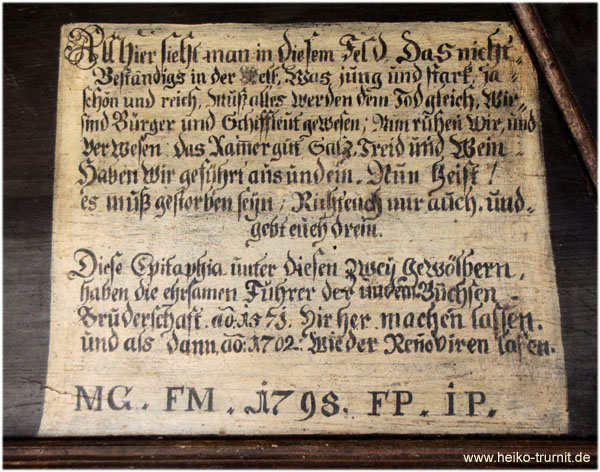 Allhier sieht man in diesem Feld, Das nicht-
Beständigs in der Welt, Was jung und stark, ja-
schön und reich, Muß alles werden dem Tod gleich, Wir-
sind Bürger und Schiffleut gewesen, Nun ruhen Wir, und
Verwesen. Das Kam̄ergut Salz, Treid und Wein-
Haben Wir geführt aus und ein. Nun heist!
es muß gestorben seyn, Richt euch nur auch. und-
gebt euch drein.
Diese Epitaphia unter diesen Zweÿ Gewölbern,
haben die ehrsamen Führer der Büchsen
Bruderschaft. aō. 1571. Hir her machen lassen.
und als dann, aō: 1702: Wieder Renoviren lassen.
MG. FM. 1798. FP. iP.
www.heiko-trurnit.de